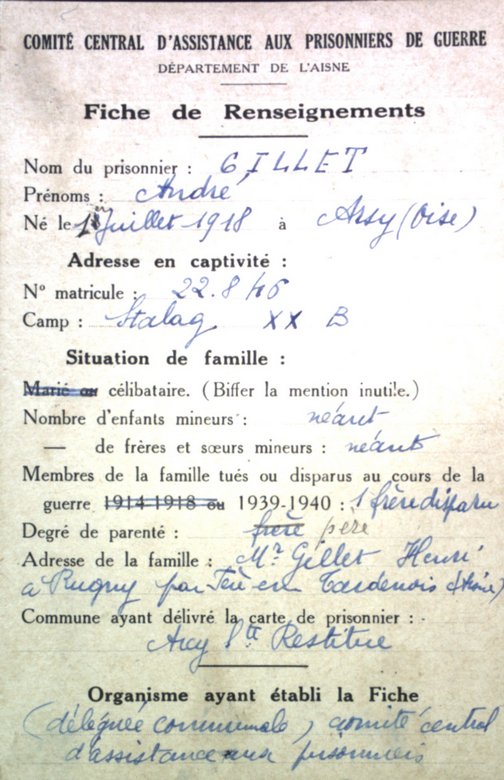 COMITÉ CENTRAL D'ASSISTANCE AUX PRISONNIERS DE GUERRE
DÉPARTEMENT DE L'AISNE
Fiche de Renseignements
Nom du prisonnier : GILLET
Prénoms : André
Né le 1er Juillet 1918 à Arsy (Oise)
Adresse en captivité :
N° matricule : 22.846
Camp : Stalag XX B
Situation de famille :
Marié ou célibataire. (Biffer la mention inutile.)
Nombre d'enfants mineurs : néant
— de frères et sœurs mineurs : néant
Membres de la famille tués ou disparus au cours de la
guerre 1914-1918 ou 1939-1940 : 1 frère disparu
Degré de parenté : frère père
Adresse de la famille : Mr Gillet Henri
à Rugny par Fère en Tardenois (Aisne)
Commune ayant délivré la carte de prisonnier :
Arcy Ste Restitue
Organisme ayant établi la Fiche
(déléguée communale) comité central
d'assistance aux prisonniers